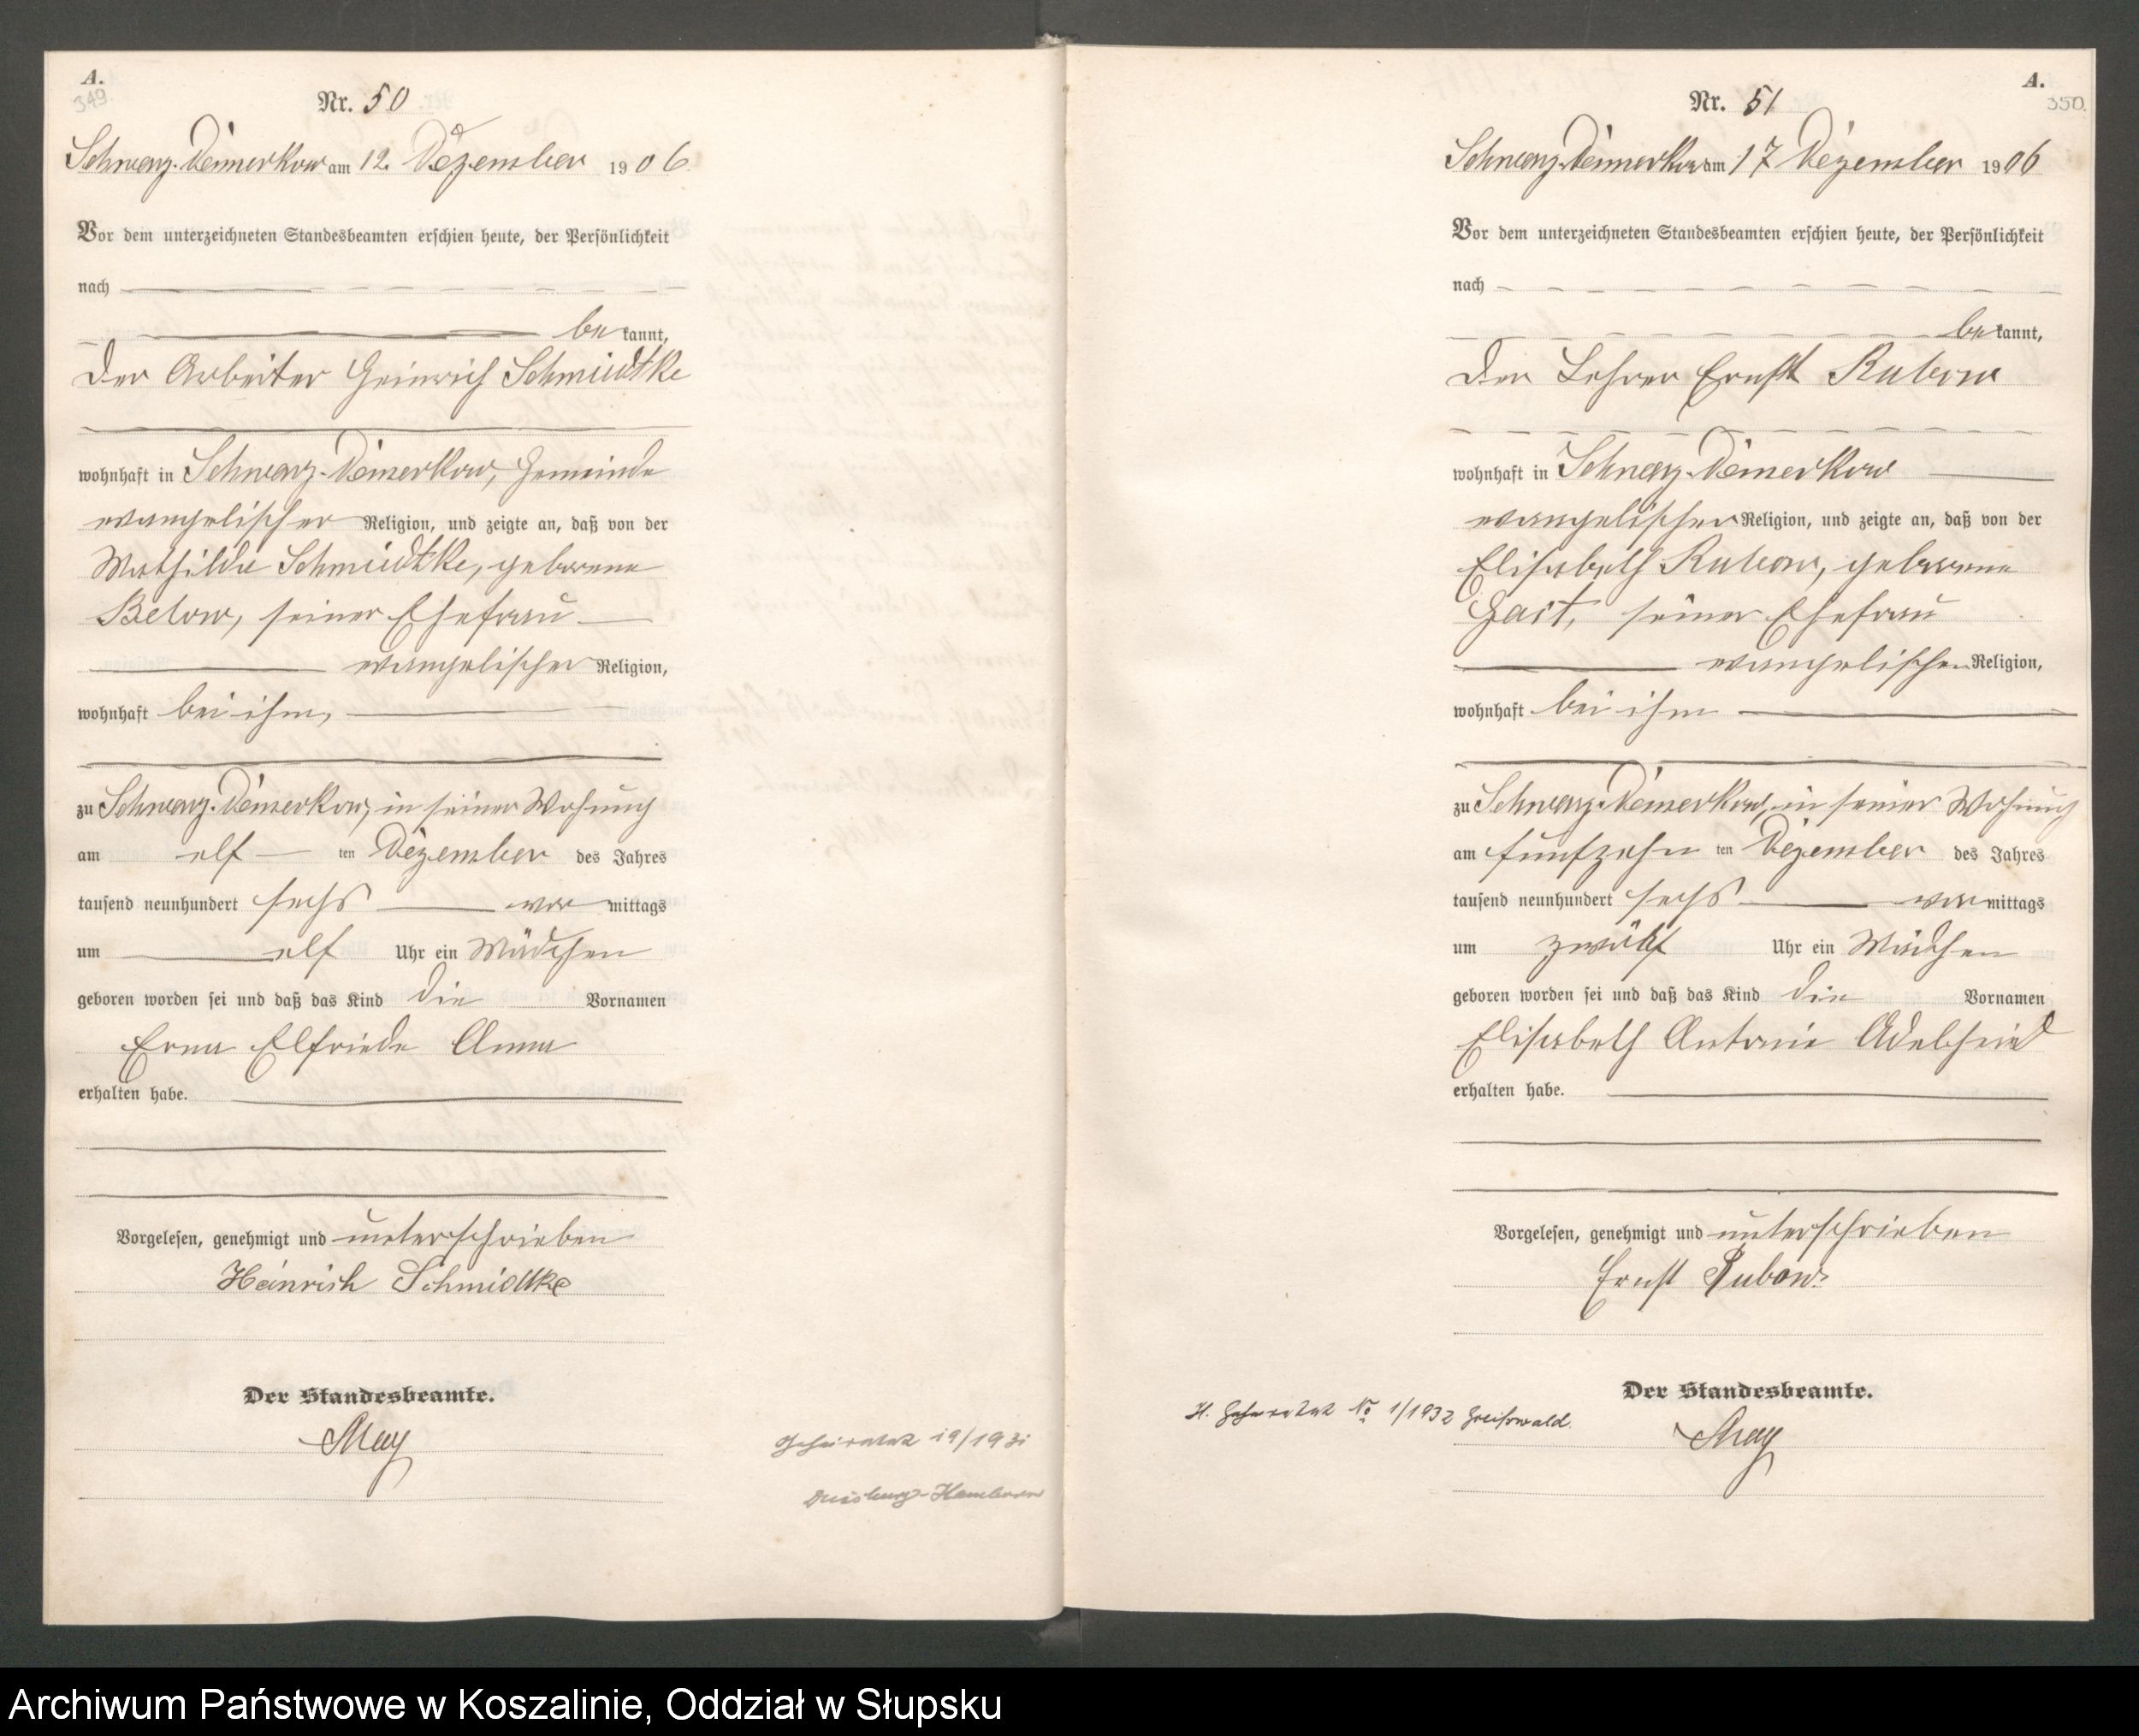 A.
349.
Nr. 50
Schwarz-Damerkow am 12. Dezember 1906.
Vor dem unterzeichneten Standesbeamten erschien heute, der Persönlichkeit
nach
be kannt,
der Arbeiter Heinrich Schmidtke
wohnhaft in Schwarz-Damerkow, Gemeinde
evangelischer Religion, und zeigte an, daß von der
Mathilde Schmidtke, geborene
Below, seiner Ehefrau
evangelischer Religion,
wohnhaft bei ihm,
zu Schwarz-Damerkow, in seiner Wohnung
am elf ten Dezember des Jahres
tausend neunhundert sechs vor mittags
um elf Uhr ein Mädchen
geboren worden sei und daß das Kind die Vornamen
Erna Elfriede Anna
erhalten habe.
Vorgelesen, genehmigt und unterschrieben
Heinrich Schmidtke
Der Standesbeamte.
May
Geheiratet 19/1931
Duisburg-Hamborn
A.
350.
Nr. 51
Schwarz-Damerkow am 17 Dezember 1906
Vor dem unterzeichneten Standesbeamten erschien heute, der Persönlichkeit
nach
be kannt,
der Lehrer Ernst Rubow
wohnhaft in Schwarz-Damerkow
evangelischer Religion, und zeigte an, daß von der
Elisabeth Rubow, geborene
seiner Ehefrau
evangelischer Religion,
wohnhaft bei ihm
zu Schwarz-Damerkow, in seiner Wohnung
am fünfzehn ten Dezember des Jahres
tausend neunhundert sechs vor mittags
um zwölf Uhr ein Mädchen
geboren worden sei und daß das Kind die Vornamen
Elisabeth Antonie Adelheid
erhalten habe.
Vorgelesen, genehmigt und unterschrieben
Ernst Rubow.
Der Standesbeamte.
May
No 1/1932 Greifswald.
Archiwum Państwowe w Koszalinie, Oddział w Słupsku